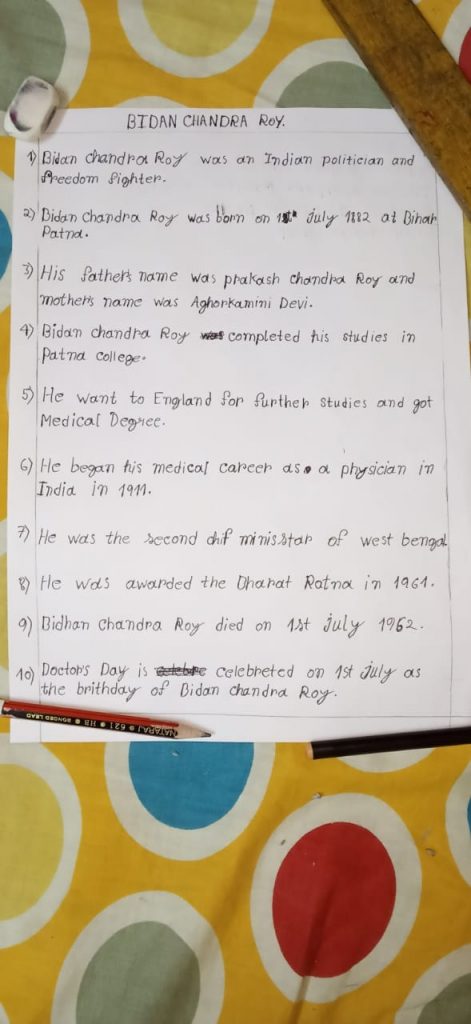 BIDAN CHANDRA ROY.
1) Bidan chandra Roy was an Indian politician and
freedom fighter.
2) Bidan Chandra Roy was born on 1st July 1882 at Bihar
Patna.
3) His father's name was prakash chandra Roy and
mother's name was Aghorkamini Devi.
4) Bidan chandra Roy was completed his studies in
Patna college.
5) He want to England for further studies and got
Medical Degree.
6) He began his medical career as a physician in
India in 1911.
7) He was the second chif ministar of west bengal
8) He was awarded the Bharat Ratna in 1961.
9) Bidhan Chandra Roy died on 1st July 1962.
10) Doctor's Day is celebre celebreted on 1st July as
the brithday of Bidan chandra Roy.
NATARAJ 621 HB BONDED LEAD